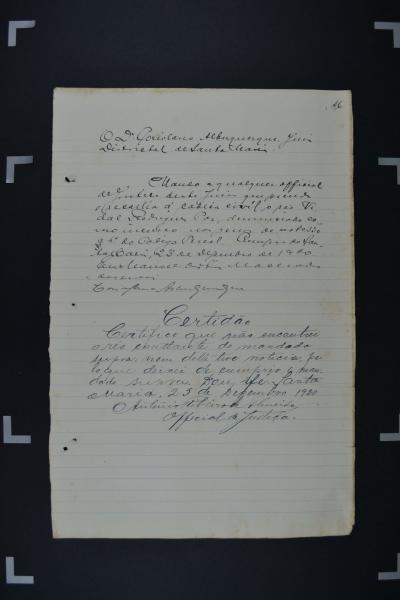 O Dr. Coriolano Albuquerque, Juiz
Districtal de Santa Maria.
Mando a qualquer official
de Justiça deste Juizo que prenda
e recolha á cadeia civil, o réo Vi-
dal Rodrigues
do Codigo Penal. Cumpra. San-
ta Maria, 23 de Dezembro de 1920
Eu
escrevi.
Coriolano Albuquerque
Certidão
Certifico que não encontrei
o réo constante do mandado
supra, nem delle tive noticia, pe-
lo que deixei de cumprir o man-
dado supra. Dou fé. Santa
Maria, 25 de Dezembro 1920
O Antonio Ribeiro de Almeida
Official de Justiça.